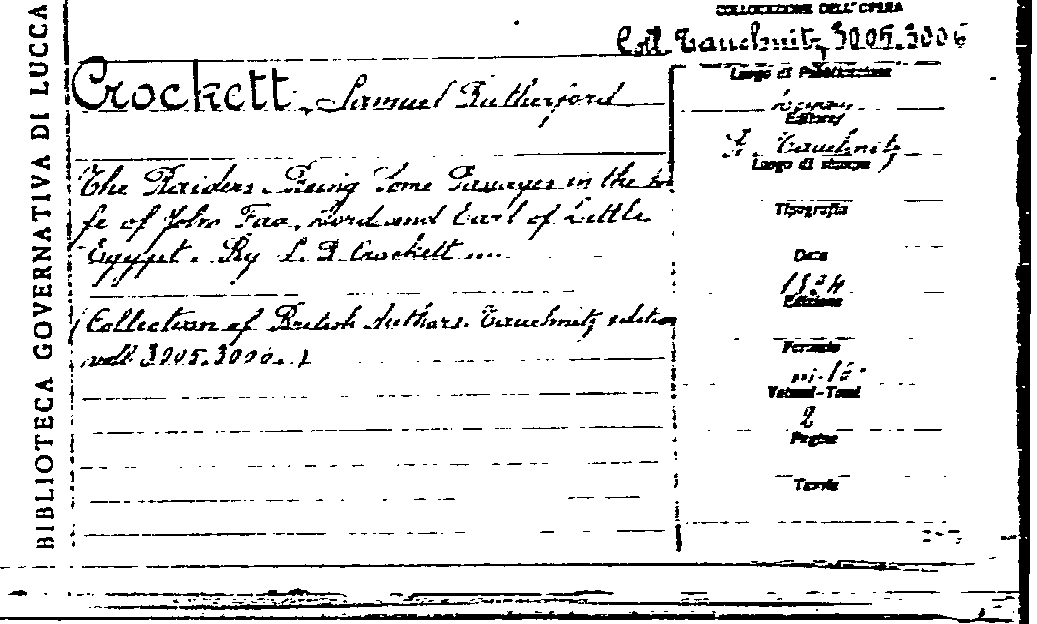 BIBLIOTECA GOVERNATIVA DI LUCCA
COLLOCAZIONE DELL'OPERA
Col. Tauchnitz 3005.3006
Crockett, Samuel Rutherford
The Raiders. Being Some Passages in the Li-
fe of John Faa, Lord and Earl of Little
Egypt. By S. R. Crockett
(Collection of British Authors. Tauchnitz edition
voll. 3005.3006.)
Luogo di Pubblicazione
Editore
B. Tauchnitz
Luogo di stampa
Tipografia
Data
Edizione
Formato
in-16°
Volumi-Tomi
2
Pagine
Tavole